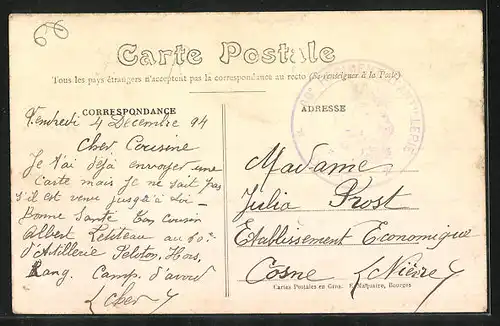 Carte Postale
Tous les pays étrangers n'acceptent pas la correspondance au recto (Se renseigner à la Poste)
CORRESPONDANCE
Vendredi 4 Décembre 94
Cher Cousine
Je t'ai déjà envoyer une
carte mais je ne sait pas
s'il est venue jusqu'à toi –
Bonne Santé Ton cousin
Albert Petiteau au
d'Artillerie Peloton Hors,
Rang. Camp. d'avord
(Cher)
ADRESSE
Madame
Julia Prost
Etablissement Economique
Cosne (Nièvre)
Cartes Postales en Gros. E. Maquaire, Bourges